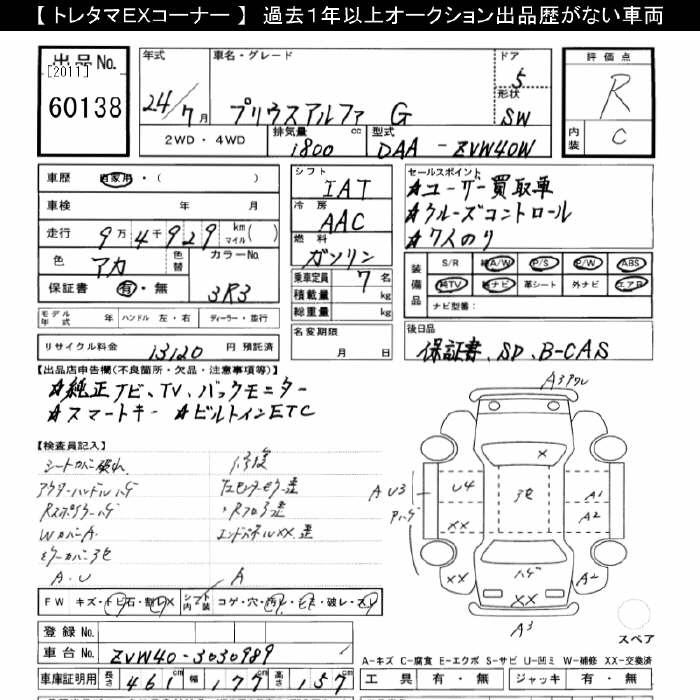 【 トレタマEXコーナー 】 過去１年以上オークション出品歴がない車両
出品 No.
[2011]
60138
年式
24/7月
車名・グレード
プリウスアルファ G
ドア
5
形状
SW
評価点
R
内装
C
2WD・4WD
排気量
1800 cc
型式
DAA - ZVW40W
車歴
自家用・( )
車検 年 月
走行 9万4千929 km マイル( )
色 アカ
色替
カラーNo.
3R3
保証書 有・無
モデル年式 年
ハンドル 左・右
ディーラー・並行
リサイクル料金 13120 円 預託済
シフト
IAT
冷房
AAC
燃料
ガソリン
乗車定員 7 名
積載量 kg
総重量 kg
名変期限
月 日
セールスポイント
★ユーザー買取車
★クルーズコントロール
★7人のり
装備品
S/R A/W P/S P/W ABS
純TV ナビ 革シート 外ナビ エアB
ナビ型番:
後日品
保証書、SD、B-CAS
【出品店申告欄(不良箇所・欠品・注意事項等)】
★純正ナビ、TV、バックモニター
★スマートキー ★ビルトインETC
【検査員記入】
シートカバー破れ
アウターハンドルハゲ
Rスポイラーハゲ
WカバーA.
ミラーカバー3セ
A.U
修復
歪
エンドパネルXX歪
A
A3
A U3
U4
XX
X
3セ
A1
A2
XX
ハゲ
XX
A2
A3
スペア
FW キズ・トビ石・割・X
シフト 内装 コゲ・穴・汚レ・破レ・
登録 No.
車台 No. ZVW40-3030989
車庫証明用 長さ 461 cm 幅 177 cm 高さ 157 cm
A-キズ C-腐食 E-エクボ S-サビ U-凹ミ W-補修 XX-交換済
工具 有・無 ジャッキ 有・無